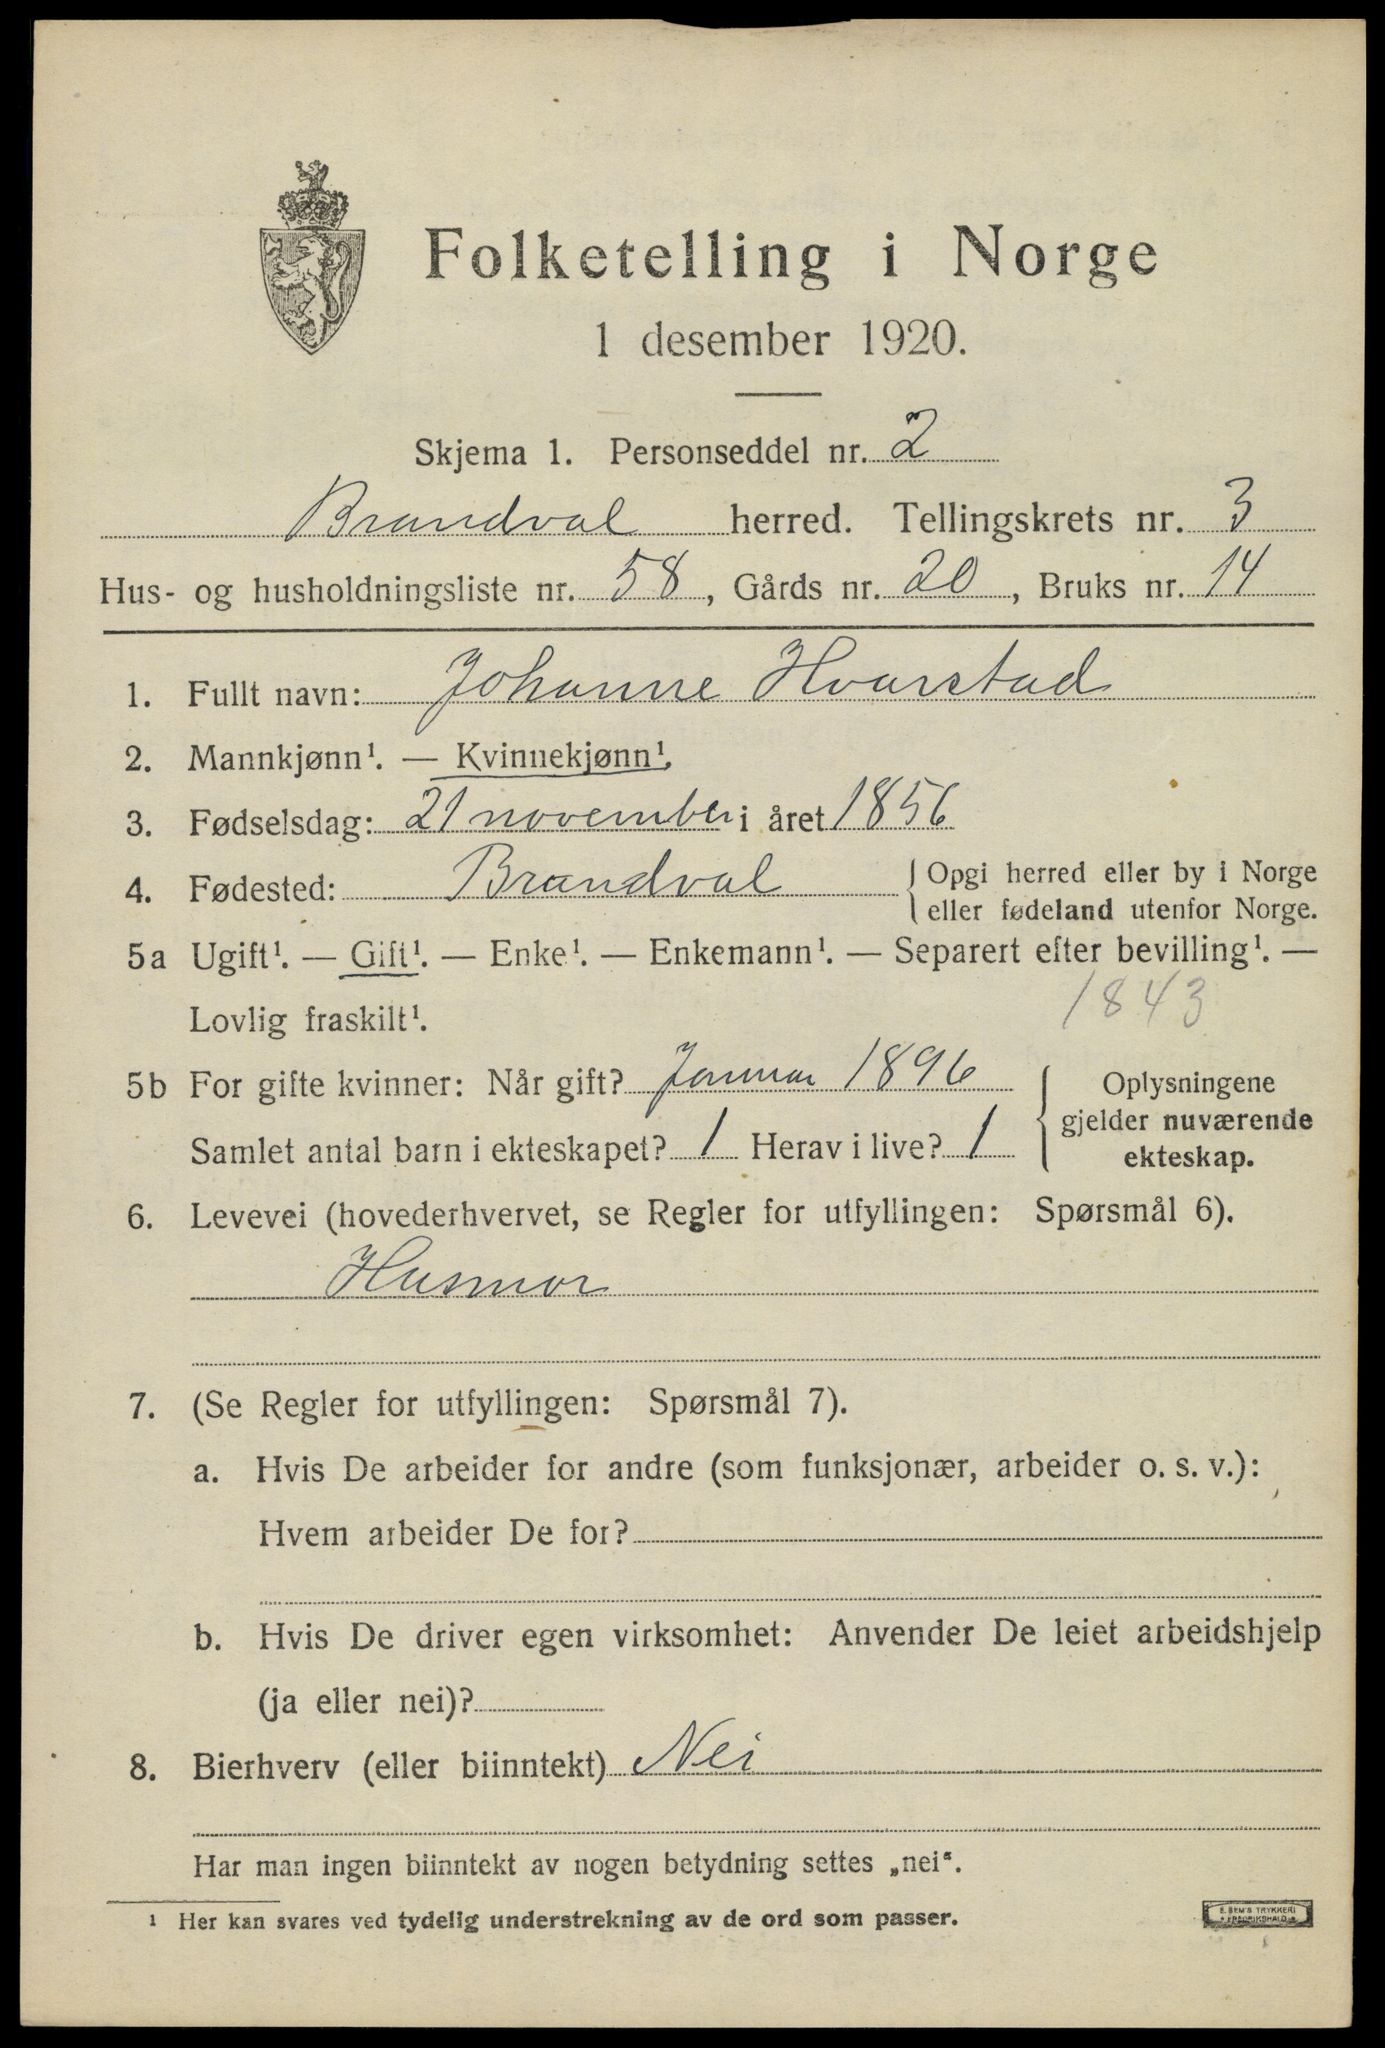 Folketelling i Norge
1 desember 1920.
Skjema 1. Personseddel nr. 2
Brandval herred. Tellingskrets nr. 3
Hus- og husholdningsliste nr. 58, Gårds nr. 20, Bruks nr. 14
1. Fullt navn: Johanne Hvarstad
2. Mannkjønn¹. — Kvinnekjønn¹.
3. Fødselsdag: 21 november i året 1856
4. Fødested: Brandval { Opgi herred eller by i Norge
eller fødeland utenfor Norge.
5a Ugift¹. — Gift¹. — Enke¹. — Enkemann¹. — Separert efter bevilling¹. —
Lovlig fraskilt¹. 1843
5b For gifte kvinner: Når gift? Januar 1896 { Oplysningene
gjelder nuværende
Samlet antal barn i ekteskapet? 1 Herav i live? 1 ekteskap.
6. Levevei (hovederhvervet, se Regler for utfyllingen: Spørsmål 6).
Husmor
7. (Se Regler for utfyllingen: Spørsmål 7).
a. Hvis De arbeider for andre (som funksjonær, arbeider o. s. v.):
Hvem arbeider De for?
b. Hvis De driver egen virksomhet: Anvender De leiet arbeidshjelp
(ja eller nei)?
8. Bierhverv (eller biinntekt) Nei
Har man ingen biinntekt av nogen betydning settes „nei“.
¹ Her kan svares ved tydelig understrekning av de ord som passer.
E. SEM'S TRYKKERI
FREDRIKSHALD